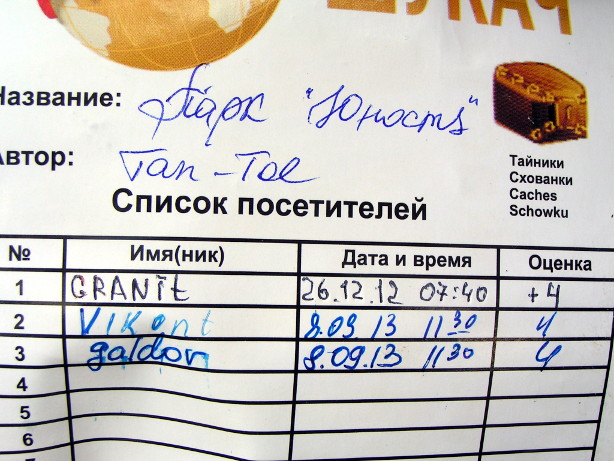 ШУКАЧ
Название: Парк "Юность"
Автор: Tan-Tol
Тайники
Схованки
Caches
Schowku
Список посетителей
№ Имя(ник) Дата и время Оценка
1 GRANIT 26.12.12 07:40 +4
2 Vikont 8.09.13 11 30 4
3 galdor 8.09.13 11 30 4
4
5
6